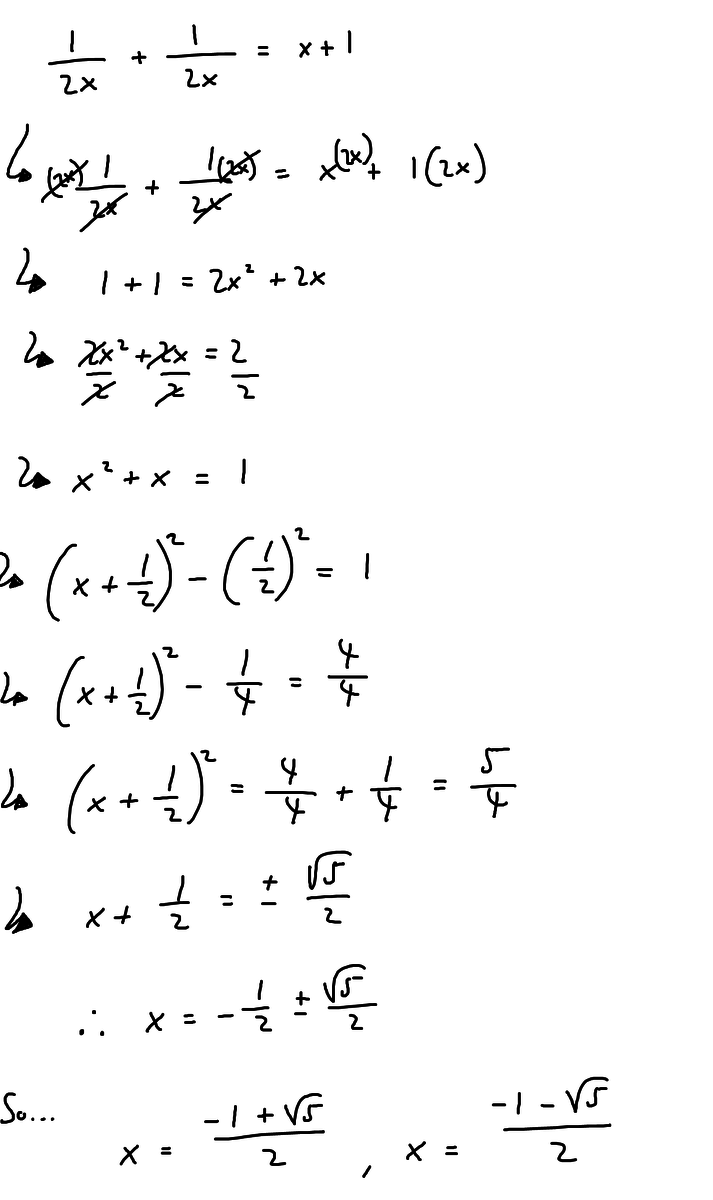 1/2x + 1/2x = x + 1
↳ (2x)1/2x + 1(2x)/2x = x(2x) + 1(2x)
↳ 1 + 1 = 2x² + 2x
↳ 2x²/2 + 2x/2 = 2/2
↳ x² + x = 1
↳ (x + 1/2)² - (1/2)² = 1
↳ (x + 1/2)² - 1/4 = 4/4
↳ (x + 1/2)² = 4/4 + 1/4 = 5/4
↳ x + 1/2 = ± √5/2
∴ x = -1/2 ± √5/2
So... x = (-1 + √5)/2 , x = (-1 - √5)/2